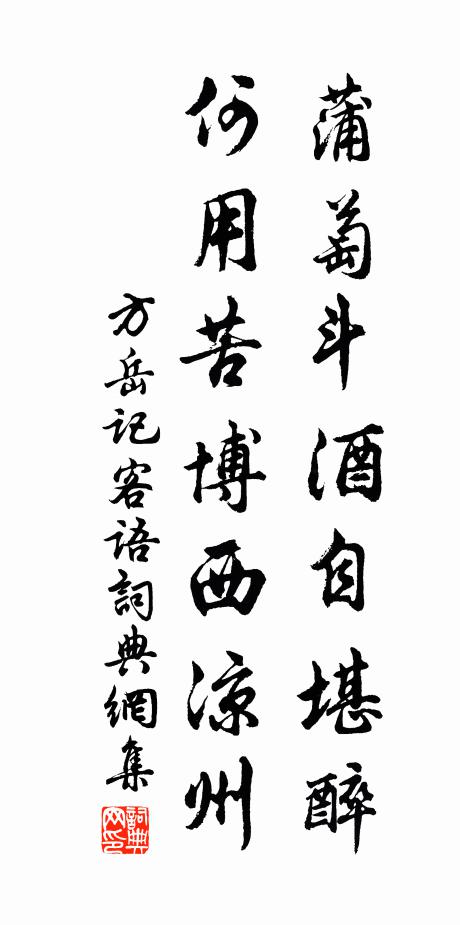 蒲萄斗酒自堪醉
何用苦博西凉州
方岳记客语詞典網集
詞典
网印